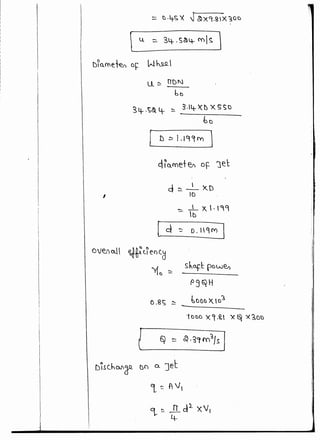 = 0.45 x √2x9.81x300
u = 34.524 m/s
Diameter of Wheel
u = πDN
60
34.524 = 3.14 x D x 550
60
D = 1.199m
diameter of jet
d = 1/10 x D
= 1/10 x 1.199
d = 0.119m
overall efficiency
η₀ = shaft power
ρgQH
0.85 = 6000 x 10³
1000 x 9.81 x Q x 300
Q = 2.39 m³/s
Discharge on a jet
q = A V₁
q = π/4 d² x V₁